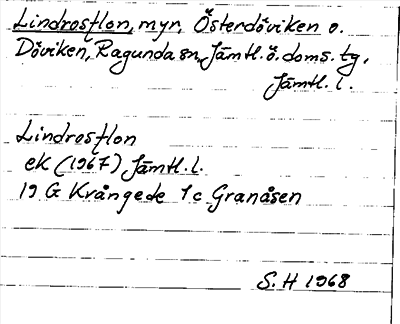 Lindrosflon, myr, Österdöviken o.
Döviken, Ragunda sn, Jämtl. ö. doms. tg.
Jämtl. l.
Lindrosflon
ek (1967) Jämtl. l.
19 G Krångede 1c Granåsen
S. H 1968